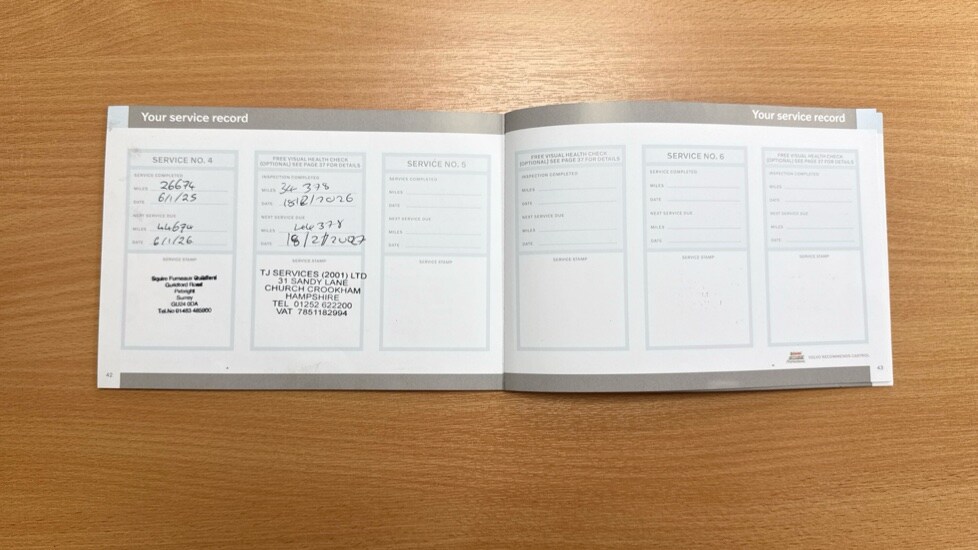 Your service record
SERVICE NO. 4
SERVICE COMPLETED
MILES 26674
DATE 6/1/25
NEXT SERVICE DUE
MILES 44674
DATE 6/1/26
SERVICE STAMP
Squire Furneaux
Guildford Road
Pirbright
Surrey
GU24
Tel.No 01483
42
FREE VISUAL HEALTH CHECK
(OPTIONAL) SEE PAGE 37 FOR DETAILS
INSPECTION COMPLETED
MILES 34 378
DATE 18/2/2026
NEXT SERVICE DUE
MILES 44 378
DATE 18/2/2027
SERVICE STAMP
TJ SERVICES (2001) LTD
31 SANDY LANE
CHURCH CROOKHAM
HAMPSHIRE
TEL 01252 622200
VAT 7851182994
SERVICE NO. 5
SERVICE COMPLETED
MILES
DATE
NEXT SERVICE DUE
MILES
DATE
SERVICE STAMP
Your service record
FREE VISUAL HEALTH CHECK
(OPTIONAL) SEE PAGE 37 FOR DETAILS
INSPECTION COMPLETED
MILES
DATE
NEXT SERVICE DUE
MILES
DATE
SERVICE STAMP
SERVICE NO. 6
SERVICE COMPLETED
MILES
DATE
NEXT SERVICE DUE
MILES
DATE
SERVICE STAMP
FREE VISUAL HEALTH CHECK
(OPTIONAL) SEE PAGE 37 FOR DETAILS
INSPECTION COMPLETED
MILES
DATE
NEXT SERVICE DUE
MILES
DATE
SERVICE STAMP
VOLVO RECOMMENDS CASTROL
43